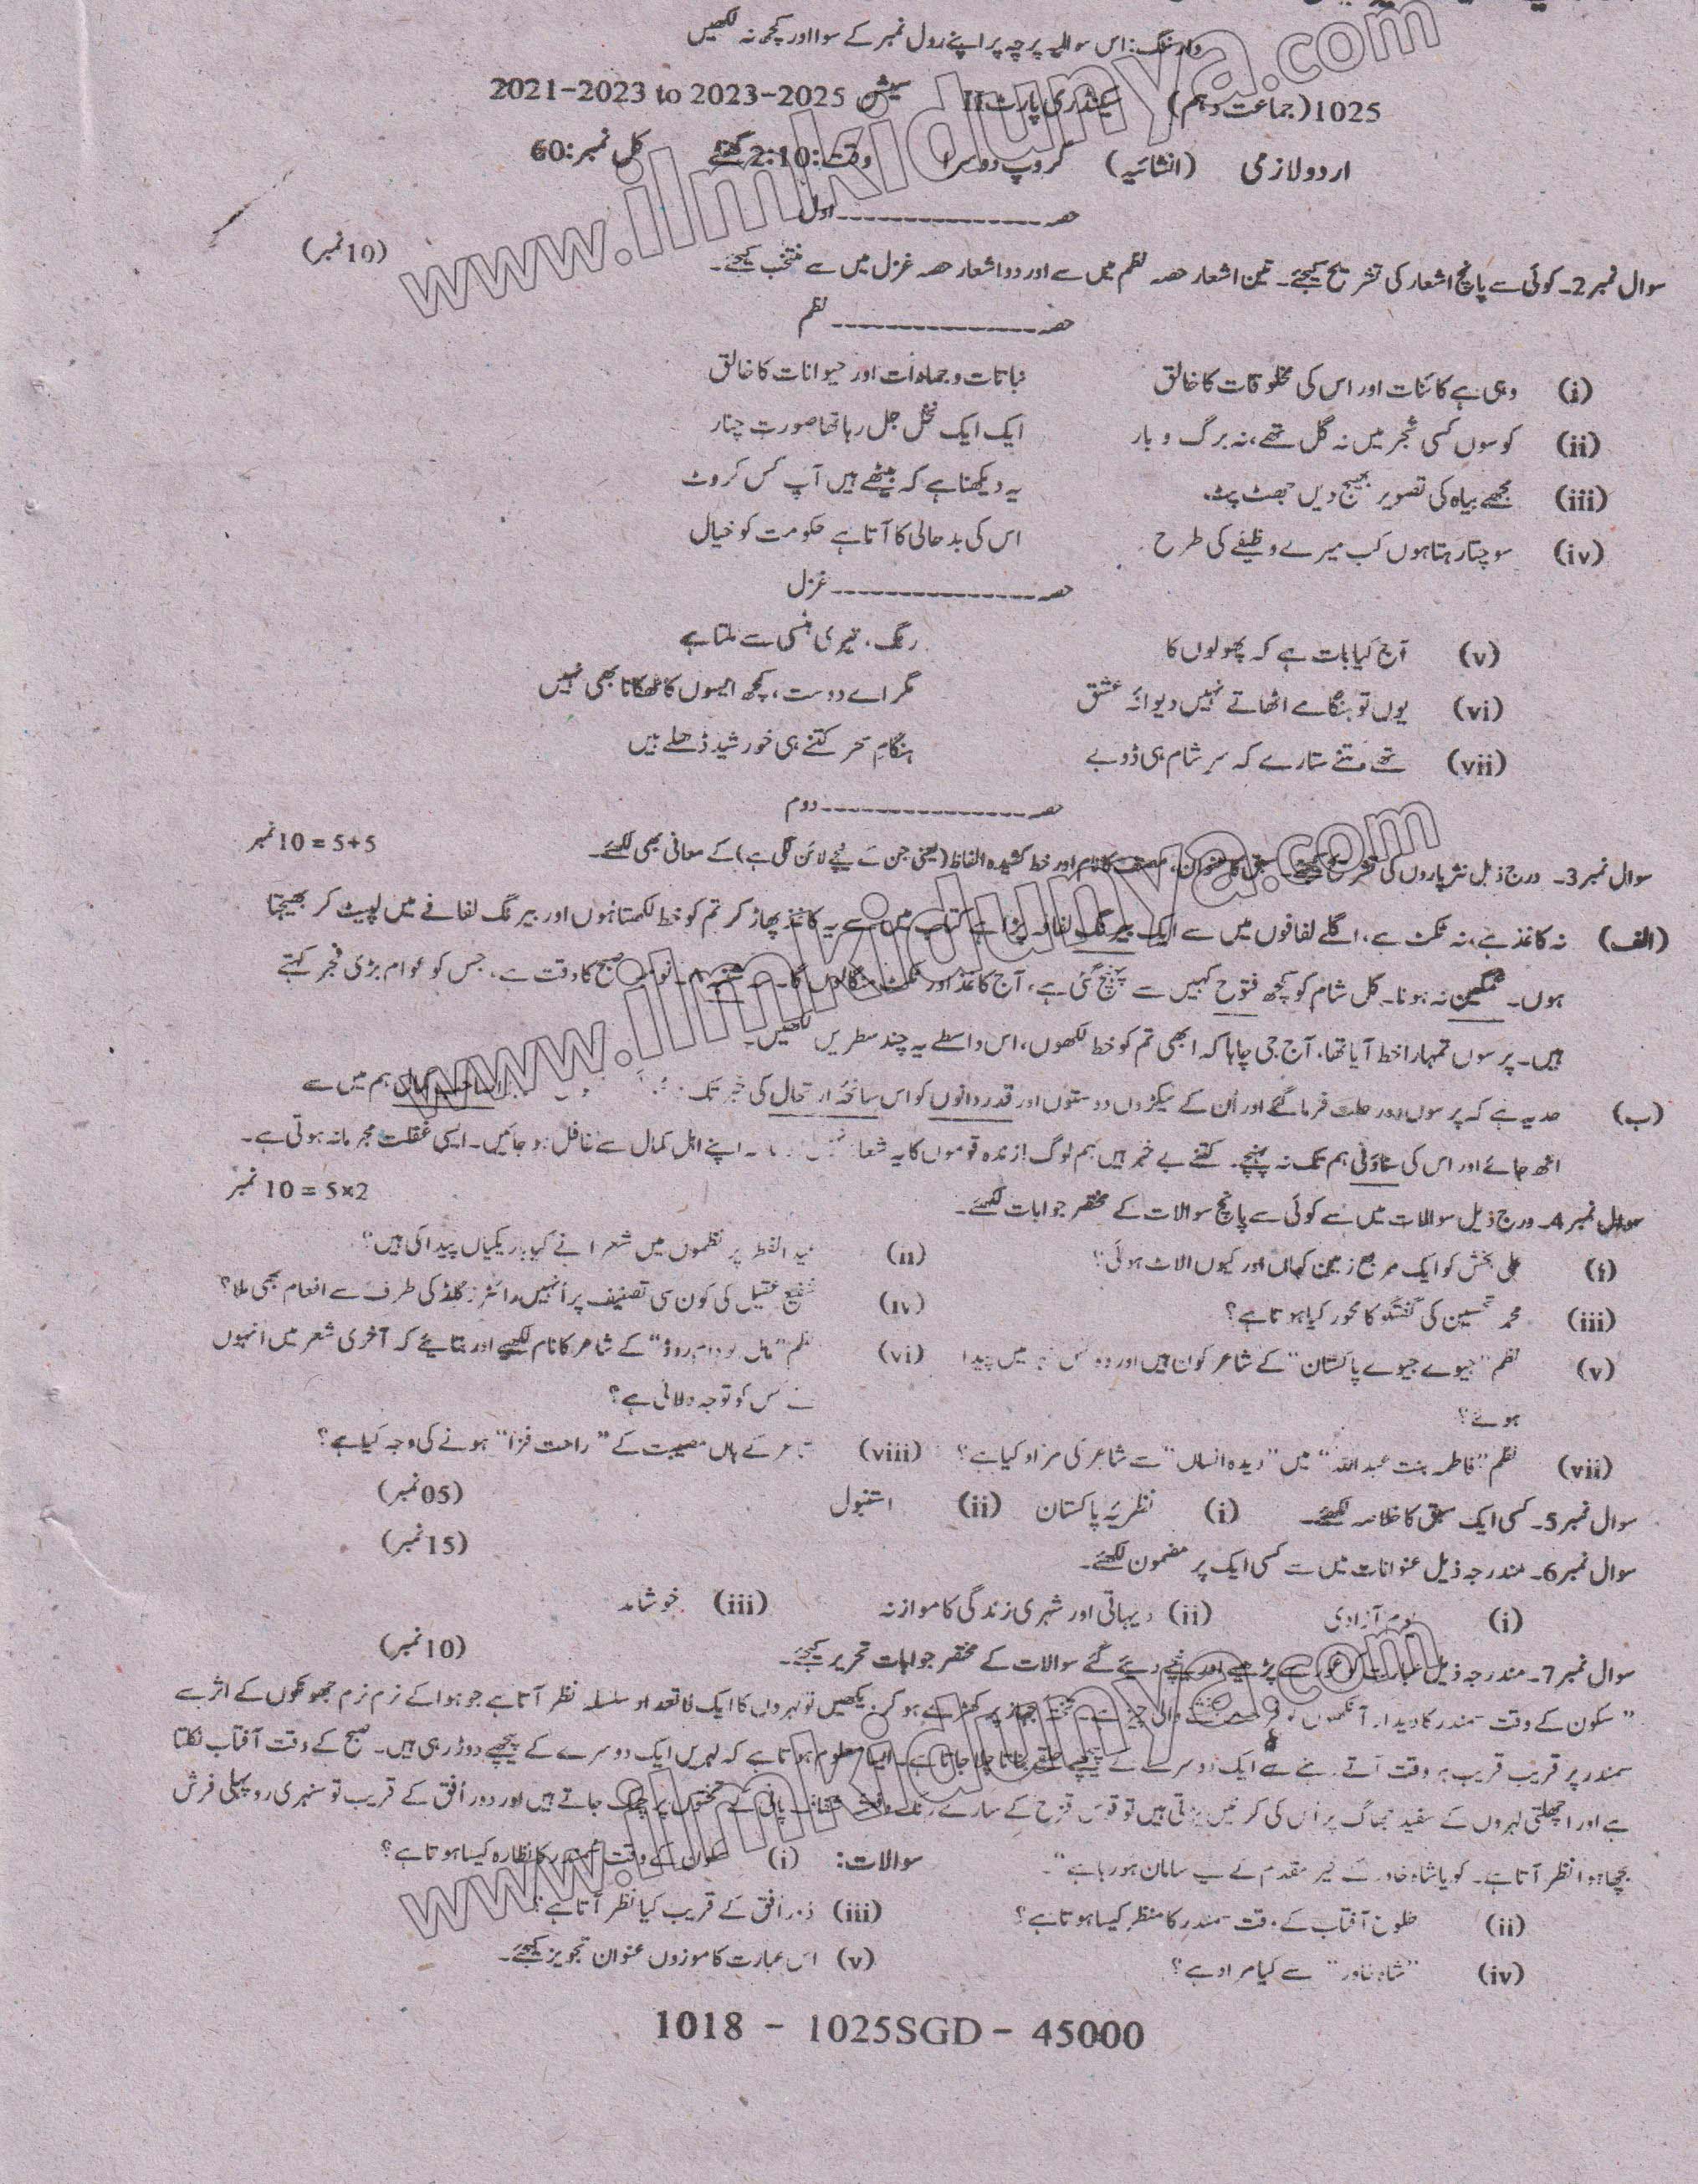 وارننگ: اس سوالیہ پرچہ پر اپنے رول نمبر کے سوا اور کچھ نہ لکھیں
1025 (جماعت دہم) سیکنڈری پارٹ II سیشن 2021-2023 to 2023-2025
اردو لازمی (انشائیہ) گروپ دوسرا وقت: 2:10 گھنٹے کل نمبر: 60
حصہ ---------------- اول
سوال نمبر 2۔ کوئی سے پانچ اشعار کی تشریح کیجئے۔ تین اشعار حصہ نظم میں سے اور دو اشعار حصہ غزل میں سے منتخب کیجئے۔ (10 نمبر)
حصہ ---------------- نظم
(i) وہی ہے کائنات اور اس کی مخلوقات کا خالق نباتات و جمادات اور حیوانات کا خالق
(ii) کوسوں کسی شجر میں نہ گل تھے، نہ برگ و بار ایک ایک نخل جل رہا تھا صورتِ چنار
(iii) مجھے بیاہ کی تصویر بھیج دیں جھٹ پٹ یہ دیکھنا ہے کہ بیٹھے ہیں آپ کس کروٹ
(iv) سوچتا رہتا ہوں کب میرے وظیفے کی طرح اس کی بدحالی کا آتا ہے حکومت کو خیال
حصہ ---------------- غزل
(v) آج کیا بات ہے کہ پھولوں کا رنگ، تیری ہنسی سے ملتا ہے
(vi) یوں تو ہنگامے اٹھاتے نہیں دیوانۂ عشق مگر اے دوست، کچھ ایسوں کا ٹھکانا بھی نہیں
(vii) تھے کتنے ستارے کہ سرِ شام ہی ڈوبے ہنگامِ سحر کتنے ہی خورشید ڈھلے ہیں
حصہ ---------------- دوم
سوال نمبر 3۔ درج ذیل نثر پاروں کی تشریح کیجئے۔ سبق کا عنوان، مصنف کا نام اور خط کشیدہ الفاظ (یعنی جن کے نیچے لائن لگی ہے) کے معانی بھی لکھئے۔ 5+5 = 10 نمبر
(الف) نہ کاغذ ہے، نہ ٹکٹ ہے، اگلے لفافوں میں سے ایک بیرنگ لفافہ پڑا ہے کتاب میں سے یہ کاغذ پھاڑ کر تم کو خط لکھتا ہوں اور بیرنگ لفافے میں لپیٹ کر بھیجتا
ہوں۔ غمگین نہ ہونا۔ کل شام کو کچھ فتوح کہیں سے پہنچ گئی ہے، آج کاغذ اور ٹکٹ منگالوں گا۔ شنبہ ۸۔ نومبر صبح کا وقت ہے، جس کو عوام بڑی فجر کہتے
ہیں۔ پرسوں تمہارا خط آیا تھا، آج جی چاہا کہ ابھی تم کو خط لکھوں، اس واسطے یہ چند سطریں لکھیں۔
(ب) حد یہ ہے کہ پرسوں وہ رحلت فرما گئے اور اُن کے سیکڑوں دوستوں اور قدردانوں کو اس سانحۂ ارتحال کی خبر تک صاحبِ کمال ہم میں سے
اٹھ جائے اور اس کی سناؤنی ہم تک نہ پہنچے۔ کتنے بے خبر ہیں ہم لوگ! زندہ قوموں کا یہ شعار اپنے اہل کمال سے غافل ہو جائیں۔ ایسی غفلت مجرمانہ ہوتی ہے۔
سوال نمبر 4۔ درج ذیل سوالات میں سے کوئی سے پانچ سوالات کے مختصر جوابات لکھئے۔ 5×2 = 10 نمبر
(i) علی بخش کو ایک مربع زمین کہاں اور کیوں الاٹ ہوئی؟ (ii) عید الفطر پر نظموں میں شعرا نے کیا باریکیاں پیدا کی ہیں؟
(iii) محمد تحسین کی گفتگو کا محور کیا ہوتا ہے؟ (iv) شفیع عقیل کی کون سی تصنیف پر اُنہیں رائٹرز گلڈ کی طرف سے انعام بھی ملا؟
(v) نظم "جیوے جیوے پاکستان" کے شاعر کون ہیں اور وہ کس میں پیدا (vi) نظم "مال گودام روڈ" کے شاعر کا نام لکھیے اور بتائیے کہ آخری شعر میں انہوں
ہوئے؟ نے کس کو توجہ دلائی ہے؟
(vii) نظم "فاطمہ بنت عبداللہ" میں "دیدۂ انساں" سے شاعر کی مراد کیا ہے؟ (viii) شاعر کے ہاں مصیبت کے "راحت فزا" ہونے کی وجہ کیا ہے؟
سوال نمبر 5۔ کسی ایک سبق کا خلاصہ لکھئے۔ (i) نظریۂ پاکستان (ii) استنبول (05 نمبر)
سوال نمبر 6۔ مندرجہ ذیل عنوانات میں سے کسی ایک پر مضمون لکھئے۔ (15 نمبر)
(i) یومِ آزادی (ii) دیہاتی اور شہری زندگی کا موازنہ (iii) خوشامد
سوال نمبر 7۔ مندرجہ ذیل عبارت کو غور سے پڑھیے اور نیچے دیئے گئے سوالات کے مختصر جوابات تحریر کیجئے۔ (10 نمبر)
"سکون کے وقت سمندر کا دیدار آنکھوں کو فرحت بخشنے والی چیز ہے۔ تختۂ جہاز پر کھڑے ہو کر دیکھیں تو لہروں کا ایک لامتناہی سلسلہ نظر آتا ہے جو ہوا کے نرم نرم جھونکوں کے اثر سے
سمندر پر قریب قریب ہر وقت ایک دوسرے کے پیچھے حلقے بناتا چلا جاتا ہے۔ ایسا معلوم ہوتا ہے کہ لہریں ایک دوسرے کے پیچھے دوڑ رہی ہیں۔ صبح کے وقت آفتاب نکلتا
ہے اور اچھلتی لہروں کے سفید جھاگ پر اُس کی کرنیں پڑتی ہیں تو قوس قزح کے سارے رنگ شفاف پانی کے تختوں پر چمک جاتے ہیں اور دور اُفق کے قریب تو سنہری روپہلی فرش
بچھا ہوا نظر آتا ہے۔ گویا شاہِ خاور کے خیر مقدم کے لیے سامان ہو رہا ہے"۔ سوالات: (i) سکون کے وقت سمندر کا نظارہ کیسا ہوتا ہے؟
(ii) طلوع آفتاب کے وقت سمندر کا منظر کیسا ہوتا ہے؟ (iii) دور اُفق کے قریب کیا نظر آتا ہے؟
(iv) "شاہِ خاور" سے کیا مراد ہے؟ (v) اس عبارت کا موزوں عنوان تجویز کیجئے۔
1018 - 1025SGD - 45000
www.ilmkidunya.com
www.ilmkidunya.com
www.ilmkidunya.com